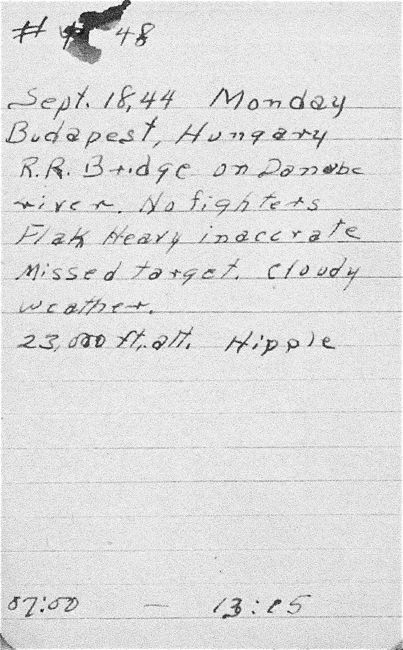 # 48
Sept. 18, 44 Monday
Budapest, Hungary
R.R. Bridge on Danube
river. No fighters
Flak Heavy inaccrate
Missed target. Cloudy
weather.
23,000 ft. alt. Hipple
07:00 — 13:15